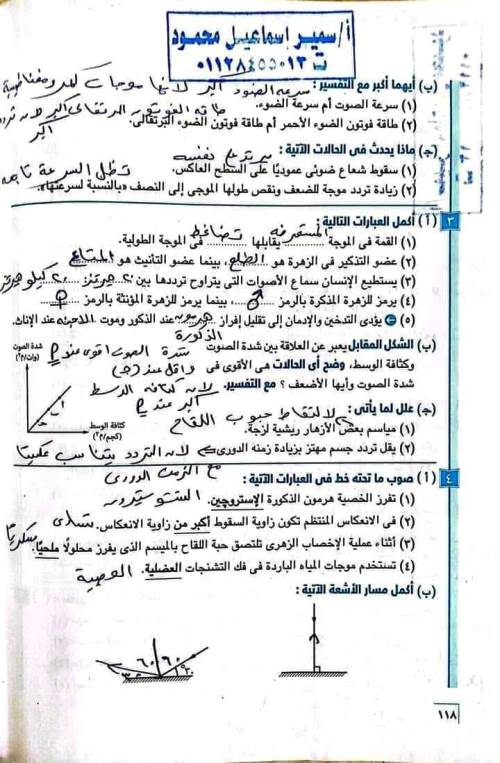 أ/سمير إسماعيل محمود
ت ٠١١٢٨٤٥٥٠١٣
(ب) أيهما أكبر مع التفسير: سرعة الضوء أكبر لأنها موجات كهرومغناطيسية
(١) سرعة الصوت أم سرعة الضوء.
(٢) طاقة فوتون الضوء الأحمر أم طاقة فوتون الضوء البرتقالى. طاقة الفوتون البرتقالى أكبر لأن تردده أكبر
(ج) ماذا يحدث فى الحالات الآتية:
(١) سقوط شعاع ضوئى عموديًا على السطح العاكس. يرتد على نفسه
(٢) زيادة تردد موجة للضعف ونقص طولها الموجى إلى النصف «بالنسبة لسرعتها». تظل السرعة ثابتة
٣ (أ) أكمل العبارات التالية:
(١) القمة فى الموجة المستعرضة يقابلها تضاغط فى الموجة الطولية.
(٢) عضو التذكير فى الزهرة هو الطلع، بينما عضو التأنيث هو المتاع
(٣) يستطيع الإنسان سماع الأصوات التى يتراوح ترددها بين ٢٠ هيرتز، ٢٠ كيلو هيرتز
(٤) يرمز للزهرة المذكرة بالرمز ♂، بينما يرمز للزهرة المؤنثة بالرمز ♀
(٥) يؤدى التدخين والإدمان إلى تقليل إفراز هرمون الذكورة عند الذكور وموت الأجنة عند الإناث.
(ب) الشكل المقابل يعبر عن العلاقة بين شدة الصوت
وكثافة الوسط، وضح أى الحالات هى الأقوى فى
شدة الصوت وأيها الأضعف؟ مع التفسير.
شدة الصوت أقوى عند
وأقل عند (ج)
لأن كثافة الوسط
أكبر عند
شدة الصوت
(وات/م٢)
كثافة الوسط
(كجم/م٣)
(ج) علل لما يأتى:
(١) مياسم بعض الأزهار ريشية لزجة. لالتقاط حبوب اللقاح
(٢) يقل تردد جسم مهتز بزيادة زمنه الدورى لأن التردد يتناسب عكسيًا
مع الزمن الدورى
٤ (أ) صوب ما تحته خط فى العبارات الآتية:
(١) تفرز الخصية هرمون الذكورة الإستروچين. التستوستيرون
(٢) فى الانعكاس المنتظم تكون زاوية السقوط أكبر من زاوية الانعكاس. تساوى
(٣) أثناء عملية الإخصاب الزهرى تلتصق حبة اللقاح بالميسم الذى يفرز محلولًا ملحيًا. سكريًا
(٤) تستخدم موجات المياه الباردة فى فك التشنجات العضلية. العصبية
(ب) أكمل مسار الأشعة الآتية:
٦٠ ٦٠
٣٠ ٣٠°
١١٨